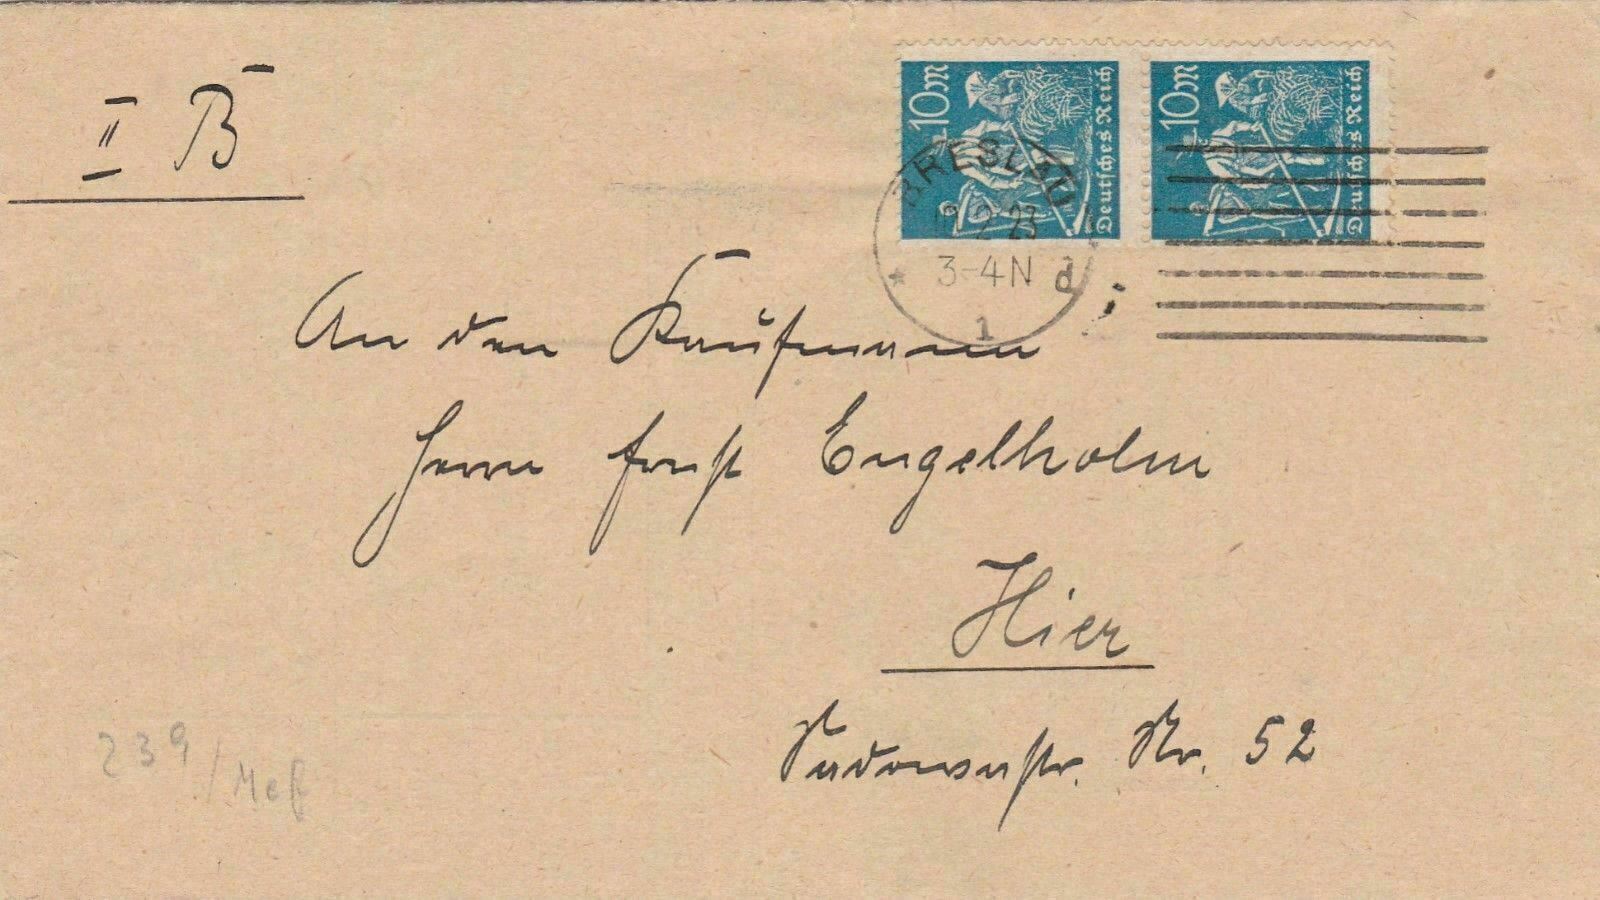 II B
10 M
Deutsches Reich
10 M
Deutsches Reich
BRESLAU
12 2 23
3-4 N
d
1
An den Kaufmann
Herrn Ernst Engelholm
Hier
Sadowastr. Nr. 52
239/Meß